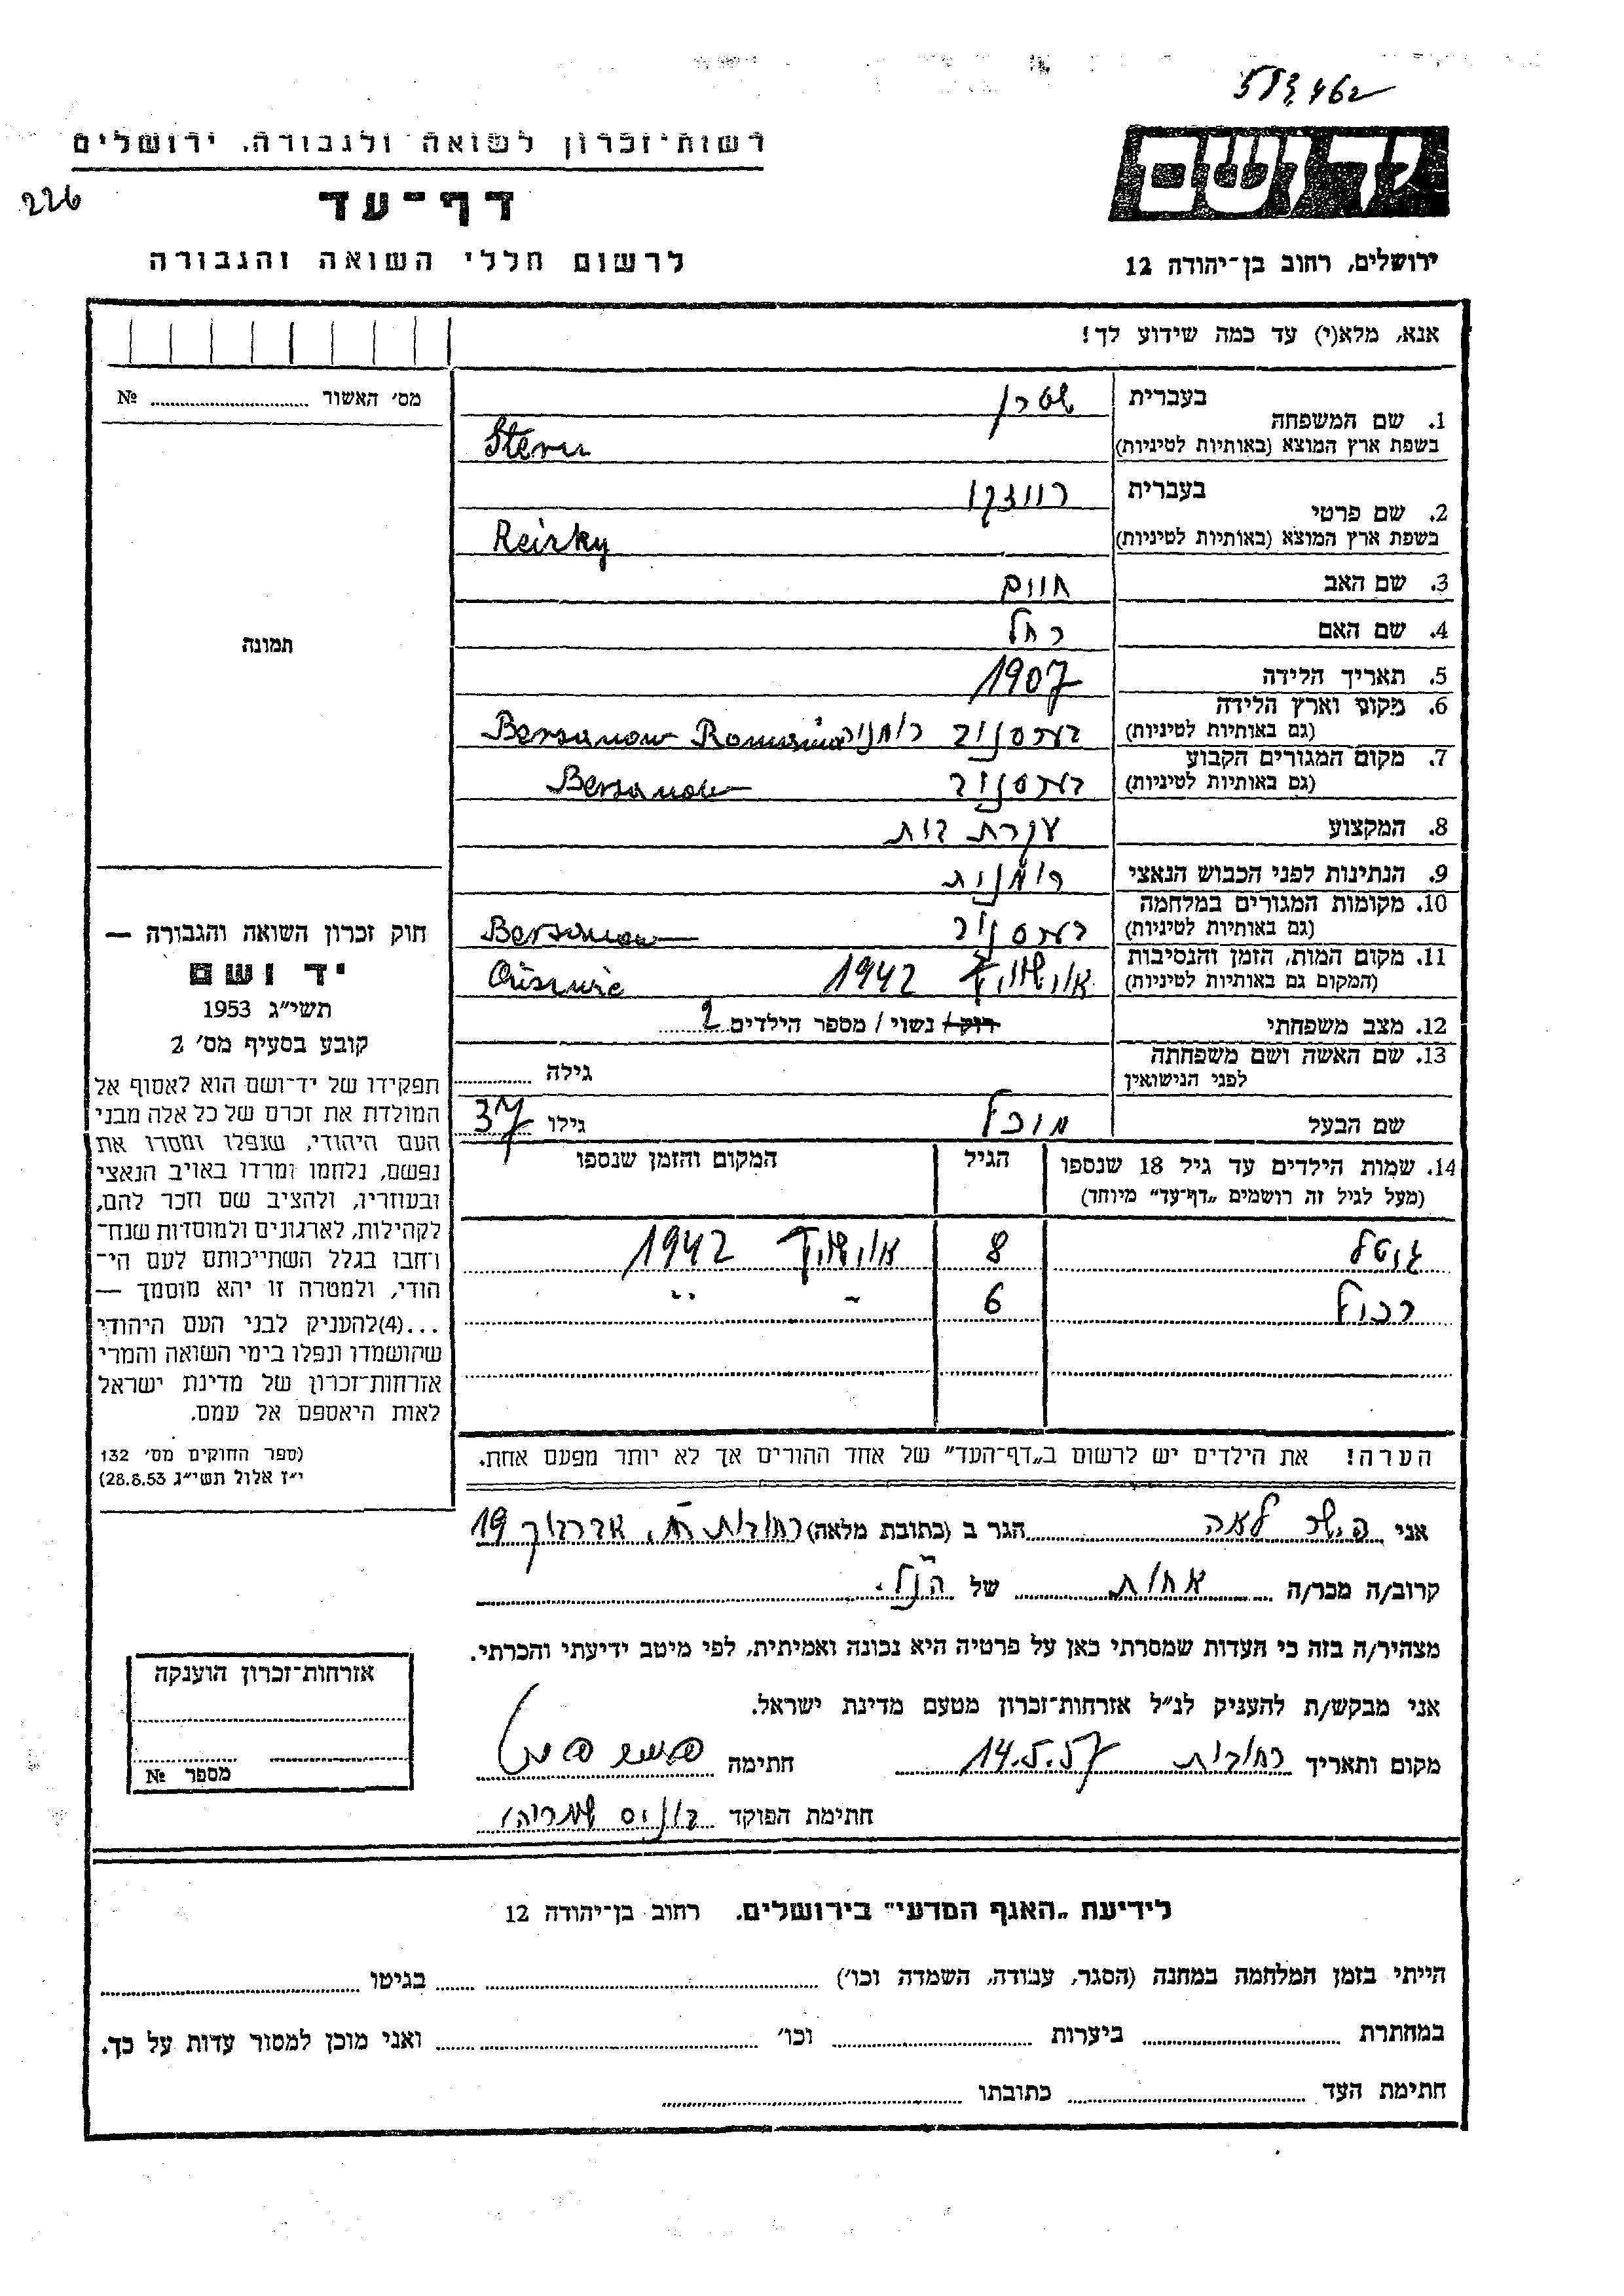 583462
רשות־זכרון לשואה ולגבורה. ירושלים
יד ושם
226
דף־עד
לרשום חללי השואה והגבורה
ירושלים, רחוב בן־יהודה 12
אנא, מלא(י) עד כמה שידוע לך!
מס׳ האשור № 
1. שם המשפחה
בעברית שטרן
בשפת ארץ המוצא (באותיות לטיניות) Stern
2. שם פרטי
בעברית רייזקי
בשפת ארץ המוצא (באותיות לטיניות) Reizky
3. שם האב חיים
4. שם האם רחל
5. תאריך הלידה 1907
6. מקום וארץ הלידה
(גם באותיות לטיניות) רומניה Romania
7. מקום המגורים הקבוע
(גם באותיות לטיניות)
8. המקצוע עקרת בית
9. הנתינות לפני הכבוש הנאצי רומנית
10. מקומות המגורים במלחמה
(גם באותיות לטיניות)
11. מקום המות, הזמן והנסיבות
(המקום גם באותיות לטיניות) אוישוויץ 1942
12. מצב משפחתי רוק / נשוי / מספר הילדים 2
13. שם האשה ושם משפחתה
לפני הנישואין
גילה
שם הבעל מיכל גילו 37
14. שמות הילדים עד גיל 18 שנספו הגיל המקום והזמן שנספו
(מעל לגיל זה רושמים „דף־עד״ מיוחד)
גיטל 8 אוישוויץ 1942
6 - ״
הערה! את הילדים יש לרשום ב„דף־העד״ של אחד ההורים אך לא יותר מפעם אחת.
תמונה
חוק זכרון השואה והגבורה —
יד ושם
תשי״ג 1953
קובע בסעיף מס׳ 2
תפקידו של יד־ושם הוא לאסוף אל
המולדת את זכרם של כל אלה מבני
העם היהודי, שנפלו ומסרו את
נפשם, נלחמו ומרדו באויב הנאצי
ובעוזריו, ולהציב שם וזכר להם,
לקהילות, לארגונים ולמוסדות שנח־
רחבו בגלל השתייכותם לעם הי־
הודי, ולמטרה זו יהא מוסמך —
...(4)להעניק לבני העם היהודי
שהושמדו ונפלו בימי השואה והמרי
אזרחות־זכרון של מדינת ישראל
לאות היאספם אל עמם.
(ספר החוקים מס׳ 132
י״ז אלול תשי״ג 28.8.53)
אני לאה הגר ב (כתובת מלאה) רחובות 19
קרוב/ה מכר/ה אחות של הנ״ל.
מצהיר/ה בזה כי העדות שמסרתי כאן על פרטיה היא נכונה ואמיתית, לפי מיטב ידיעתי והכרתי.
אני מבקש/ת להעניק לנ״ל אזרחות־זכרון מטעם מדינת ישראל.
מקום ותאריך רחובות 14.5.57 חתימה
חתימת הפוקד
אזרחות־זכרון הוענקה
מספר №
לידיעת „האגף המדעי״ בירושלים. רחוב בן־יהודה 12
הייתי בזמן המלחמה במחנה (הסגר, עבודה, השמדה וכו׳) בגיטו
במחתרת ביערות וכו׳ ואני מוכן למסור עדות על כך.
חתימת העד כתובתו